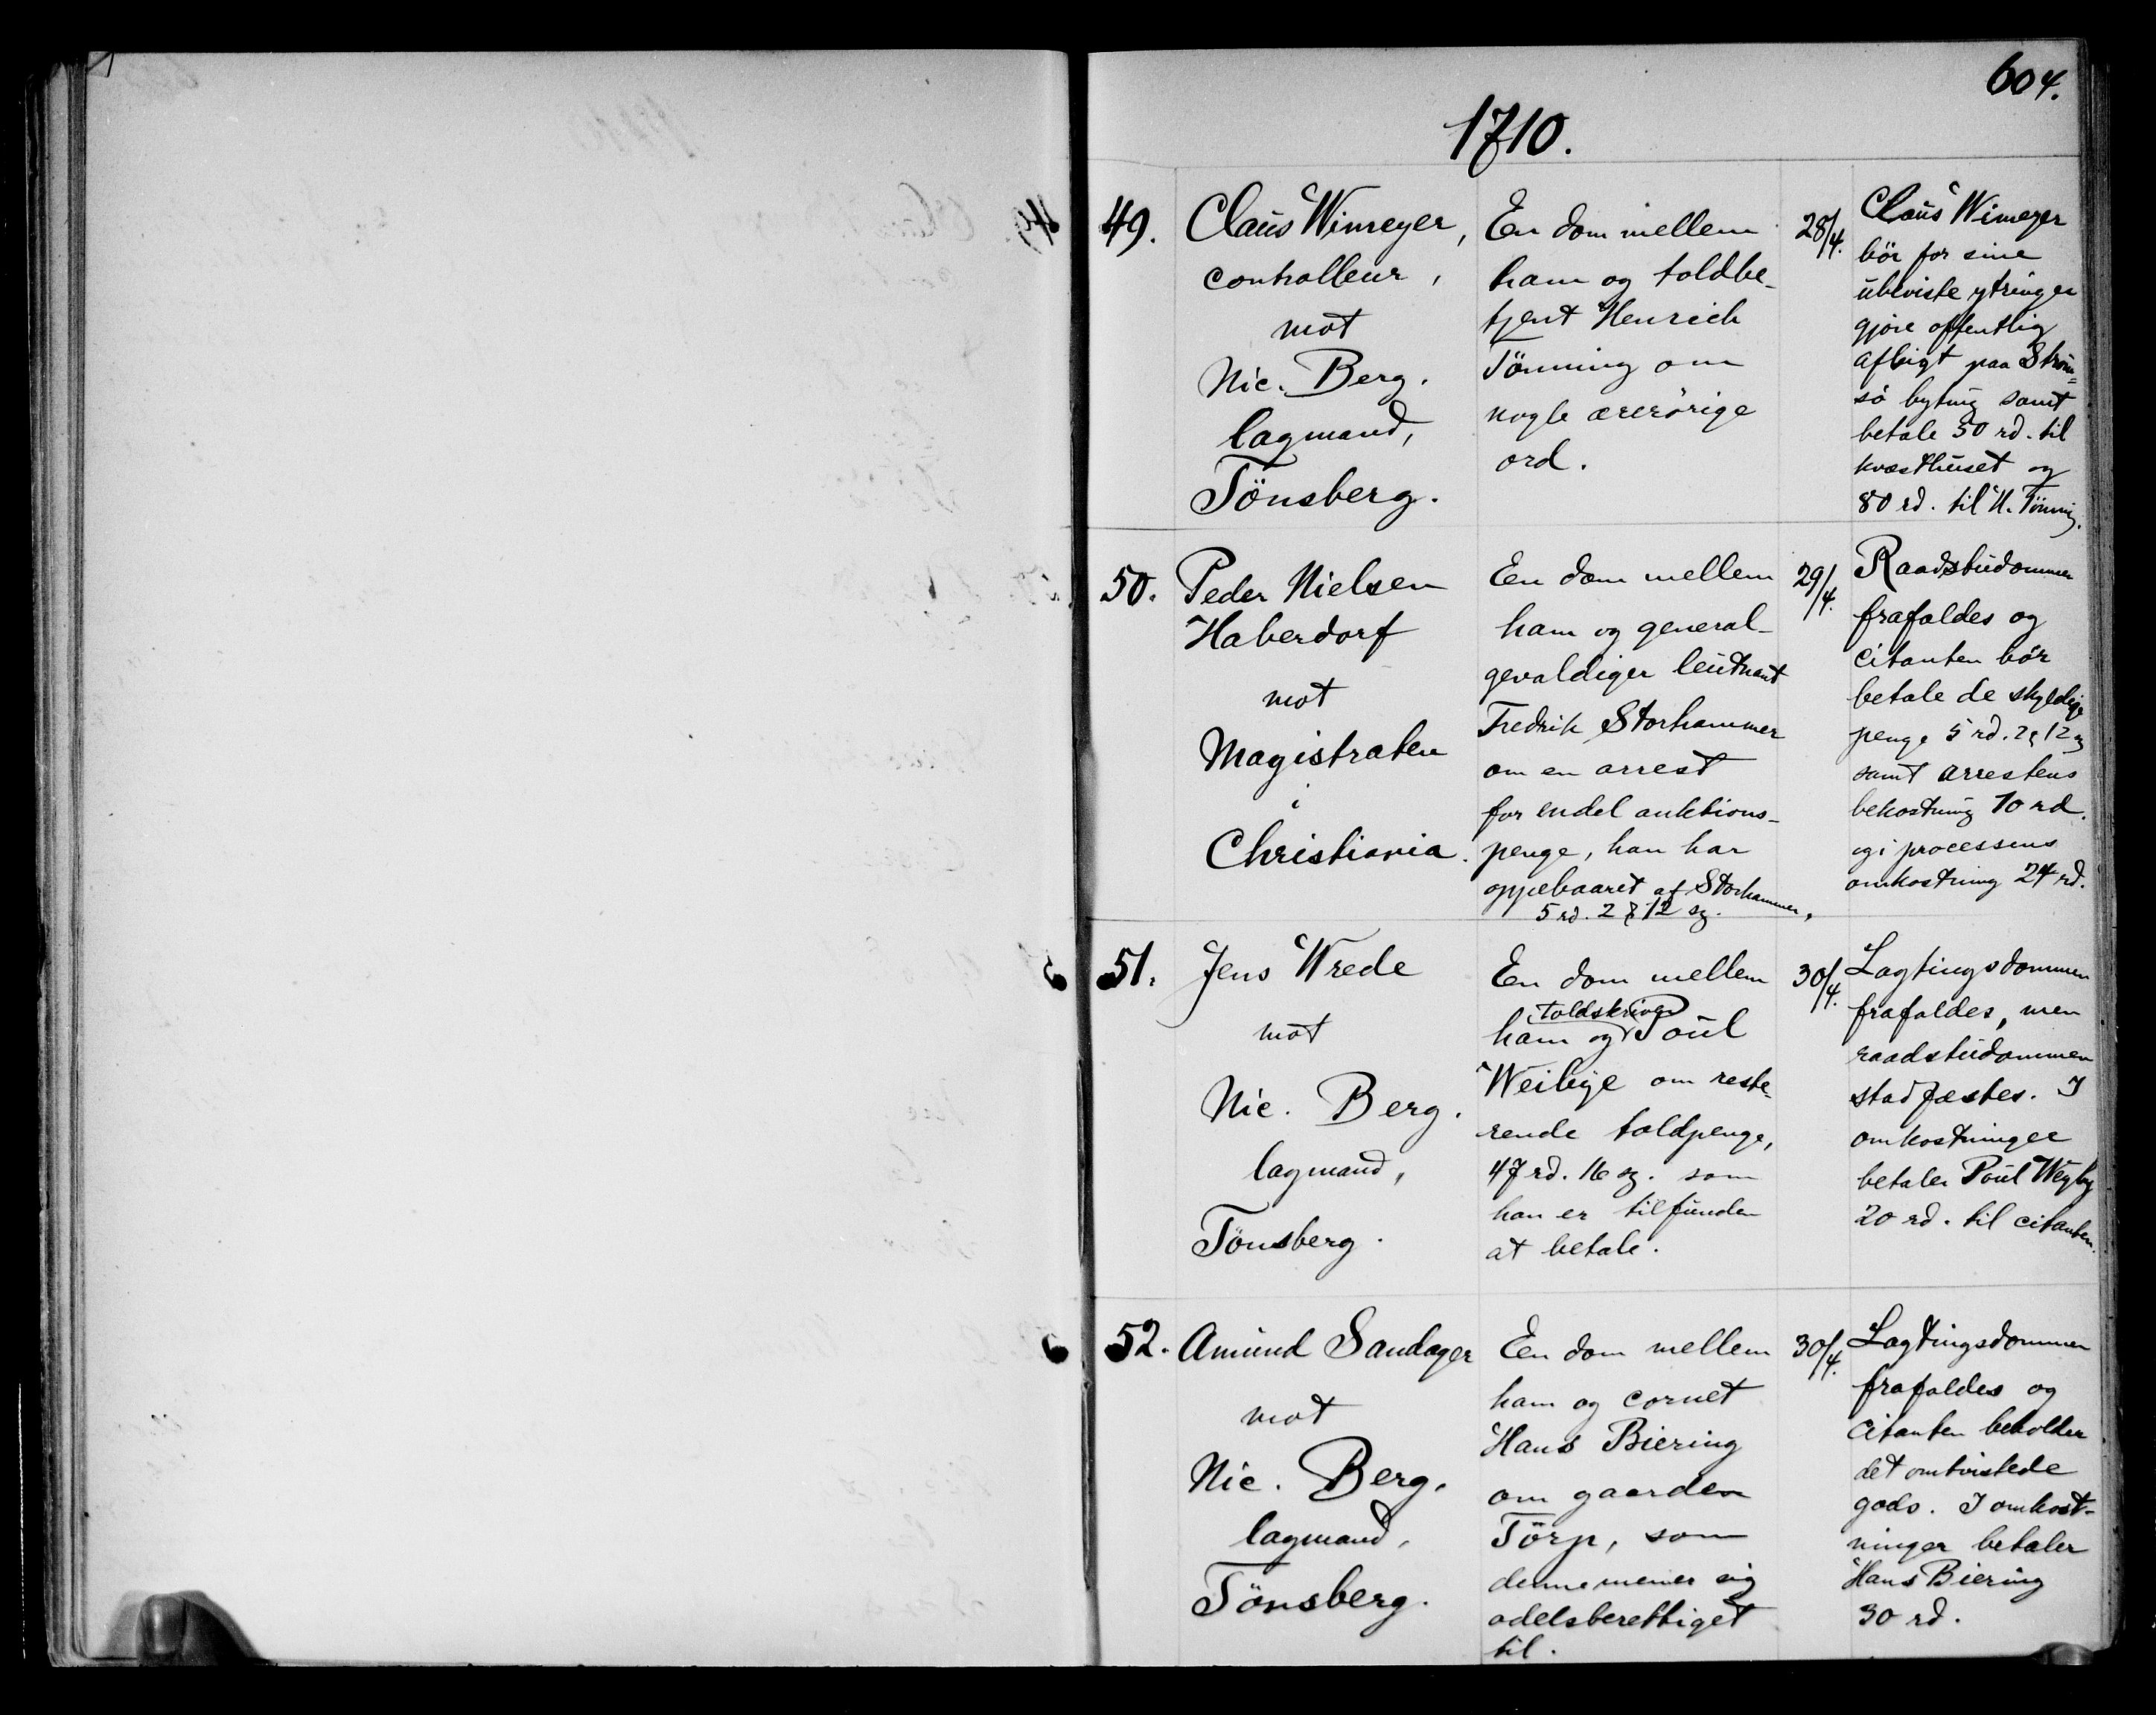 604.
1710.
49.
Claus Wimeyer,
controlleur,
mot
Nic. Berg.
lagmand,
Tönsberg.
En dom mellem
ham og toldbe-
tjent Henrich
Tönning om
nogle ærerörige
ord.
28/4.
Claus Wimeyer
bör for sine
ubeviste ytringer
gjöre offentlig
afbigt paa Ström=
sö byting samt
betale 50 rd. til
kvæsthuset og
80 rd. til H. Tönning.
50.
Peder Nielsen
Haberdorf
mot
Magistraten
i
Christiania.
En dom mellem
ham og general-
gevaldiger leutnant
Fredrik Storhammer
om en arrest
for endel auktions-
penge, han har
oppebaaret af Storhammer,
5 rd. 2 12 sz.
29/4.
Raadstudommen
frafaldes og
citanten bör
betale de skyldige
penge 5 rd. 2 12
samt arrestens
bekostning 10 rd.
og i processens
omkostning 24 rd.
51.
Jens Wrede
mot
Nic. Berg.
lagmand,
Tönsberg.
En dom mellem
toldskriver
ham og Poul
Weibye om reste-
rende toldpenge,
47 rd. 16 sz. som
han er tilfunden
at betale.
30/4.
Lagtingsdommen
frafaldes, men
raadstudommen
stadfæstes. I
omkostninger
betaler Poul Weyby
20 rd. til citanten.
52.
Amund Sandager
mot
Nic. Berg.
lagmand,
Tönsberg.
En dom mellem
ham og cornet
Hans Biering
om gaarden
Törp, som
denne mener sig
odelsberettiget
til.
30/4.
Lagtingsdommen
frafaldes og
citanten beholder
det omtvistede
gods. I omkost-
ninger betaler
Hans Biering
30 rd.